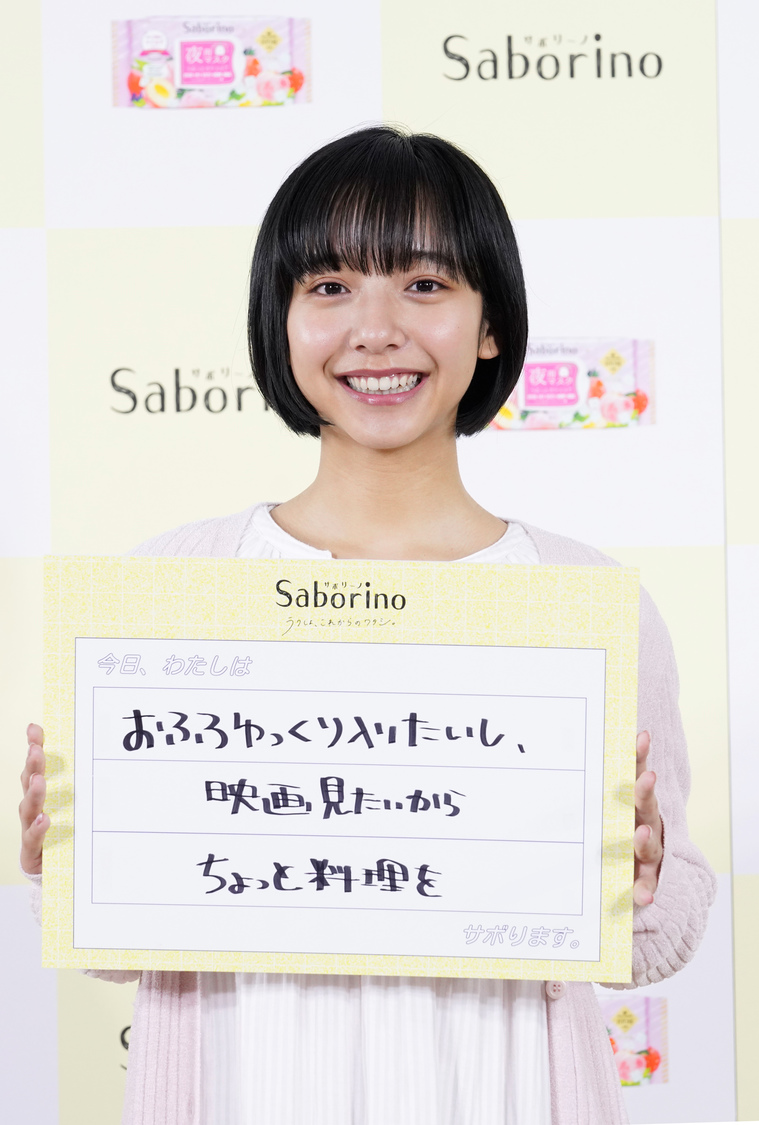 Saborino
夜用マスク
サボリーノ
Saborino
サボリーノ
Sabori
Saborino
夜用マスク
サボリーノ
Saborino
今日、わたしは
おふろゆっくり入りたいし、
映画見たいから
ちょっと料理を
サボります。